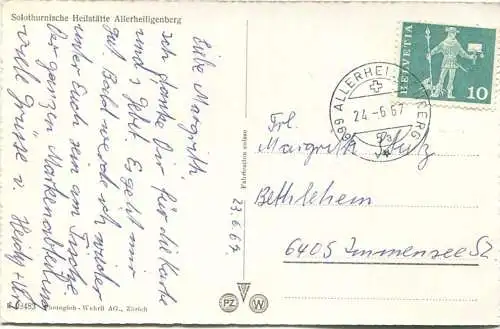 Solothurnische Heilstätte Allerheiligenberg
Liebe Margrith
Ich danke Dir für die Karte
und s Gebet. Es geht mir
gut. Bald werde ich wieder
unter Euch sein am Tische
der ganzen Markenabteilung
viele Grüsse v. Heidy +
23.6.67.
Fabrikation suisse
Photogloh-Wehrli AG., Zürich
PZ
W
HELVETIA
10
ALLERHEILIGENBERG
24.-6.67
Frl.
Margrith Stutz
Bethlehem
6405 Immensee Sz.